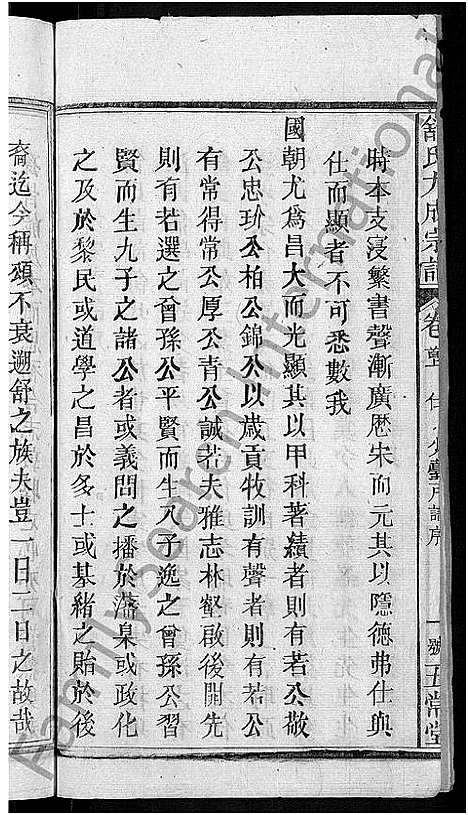 舒氏大成宗譜
時本支寖繁書聲漸廣歷宋而元其以隱德弗仕與
仕而顯者不可悉數我
國朝尤為昌大而光顯其以甲科著績者則有若公敬
公忠玠公柏公錦公以歲貢牧訓有聲者則有若公
有常得常公厚公青公誠若夫雅志林壑啟後開先
則有若選之曾孫公平賢而生八子逸之曾孫公習
賢而生九子之諸公者或義問之播於藩臬或政化
之及於黎民或道學之昌於多士或基緒之貽於後
裔迄今稱頌不衰遡舒之族夫豈一日二日之故哉
卷
戶譜序
一號
五常堂
FamilySearch International